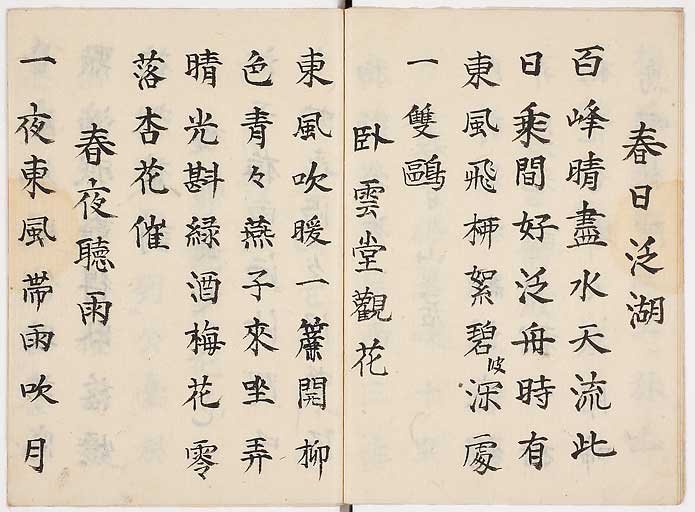 春日泛湖
百峰晴盡水天流此
日乘間好泛舟時有
東風飛栁絮碧波深處
一雙鷗
卧雲堂觀花
東風吹暖一簾開柳
色青々燕子來坐弄
晴光斟緑酒梅花零
落杏花催
春夜聽雨
一夜東風帶雨吹月